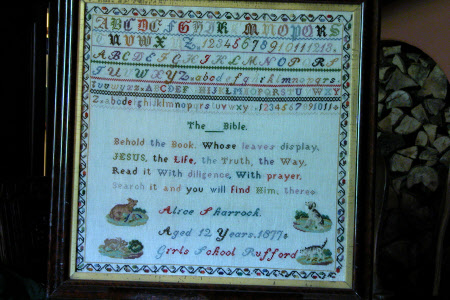 ABCDEFGHIJKLMNOPQRS
TUVWXYZ.,1234567891011121314
ABCDEFGHIJKLMNOPQRST
UVWXYZabcdefghijklmnopqrs
tuvwxyz.ABCDEFGHIJKLMNOPQRSTUVWXY
Z.abcdefghijklmnopqrstuvwxyz.1234567891011
The Bible.
Behold the Book. Whose leaves display,
JESUS, the Life, the Truth, the Way,
Read it With diligence, With prayer,
Search it and you will find Him, there.
Alice Sharrock.
Aged 12 Years, 1877.
Girls School Rufford